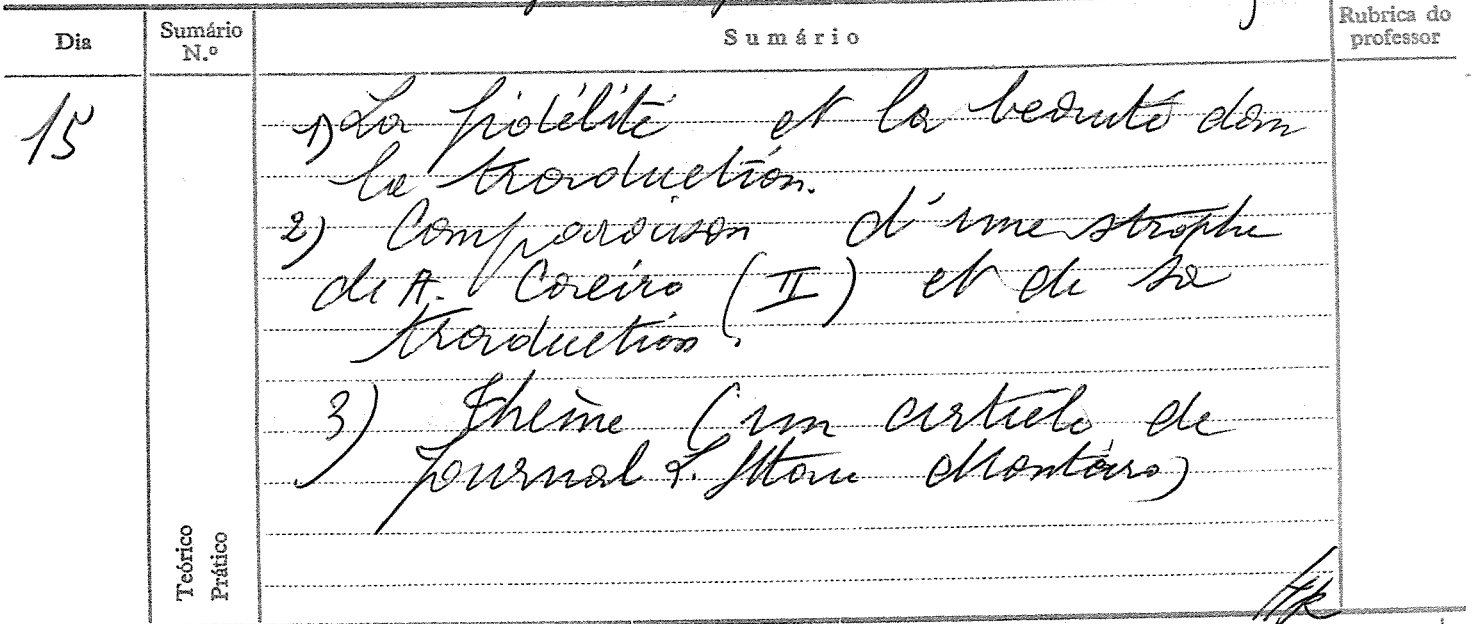 Dia
Sumário
N.º
Sumário
Rubrica do
professor
15
1) La fidélité et la beauté dans
la traduction.
2) Comparaison d'une strophe
de A. Caeiro (II) et de sa
traduction.
3) Thème (un article de
journal L. Sttau Monteiro)
Teórico
Prático